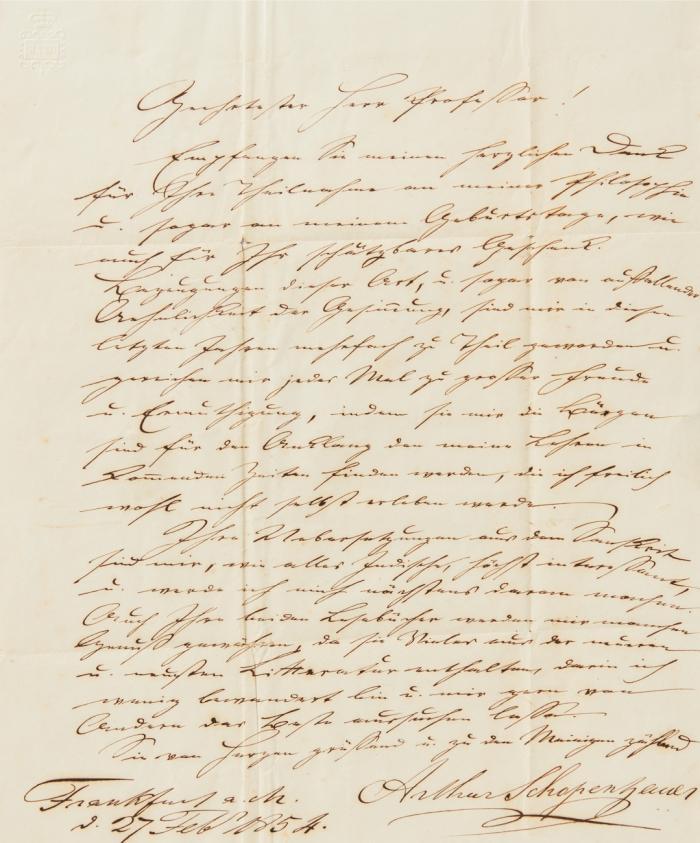 Geehrtester Herr Professor!
Empfangen Sie meinen herzlichen Dank
für Ihre Theilnahme an meiner Philosophie
u. sogar an meinem Geburtstage, wie
auch für Ihr schätzbares Geschenk.
dieser Art, u. sogar von auffallender
Aehnlichkeit der Gesinnung, sind mir in diesen
letzten Jahren mehrfach zu Theil geworden u.
gereichen mir jedes Mal zu großer Freude
u. Ermuthigung, indem sie mir die Bürgen
sind für den Anklang den meine Lehren in
kommenden Zeiten finden werden, die ich freilich
wohl nicht selbst erleben werde.
Ihre Uebersetzungen aus dem Sanskrit
sind mir, wie alles Indische, höchst interessant,
u. werde ich mich nächstens daran machen.
Auch Ihre beiden Lesebücher werden mir manchen
Genuß gewähren, da sie Vieles aus der neueren
u. neusten Litteratur enthalten, darin ich
wenig bewandert bin u. mir gern von
Andern das Beste aussuchen lasse.
Sie von Herzen grüßend u. zu den Meinigen zählend
Arthur Schopenhauer
Frankfurt a. M.
d. 27 Febr 1854.